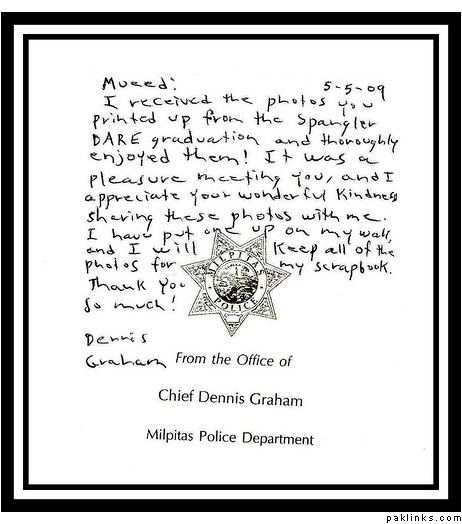 Mueed: 5-5-09
I received the photos you
printed up from the Spangler
DARE graduation and thoroughly
enjoyed them! It was a
pleasure meeting you, and I
appreciate your wonderful kindness
sharing these photos with me.
I have put one up on my wall,
and I will keep all of the
photos for my scrapbook.
Thank you
so much!
MILPITAS
POLICE
Dennis
Graham
From the Office of
Chief Dennis Graham
Milpitas Police Department
paklinks.com